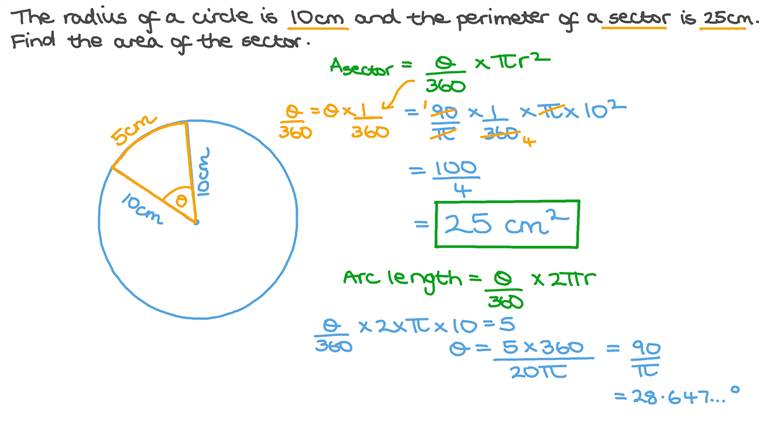 The radius of a circle is 10cm and the perimeter of a sector is 25cm.
Find the area of the sector.
A sector = θ/360 × πr²
θ/360 = θ × 1/360
= ¹90/π × 1/360₄ × π × 10²
= 100/4
= 25 cm²
5cm
10cm
10cm
θ
Arc length = θ/360 × 2πr
θ/360 × 2 × π × 10 = 5
θ = 5 × 360/20π = 90/π
= 28.647...°